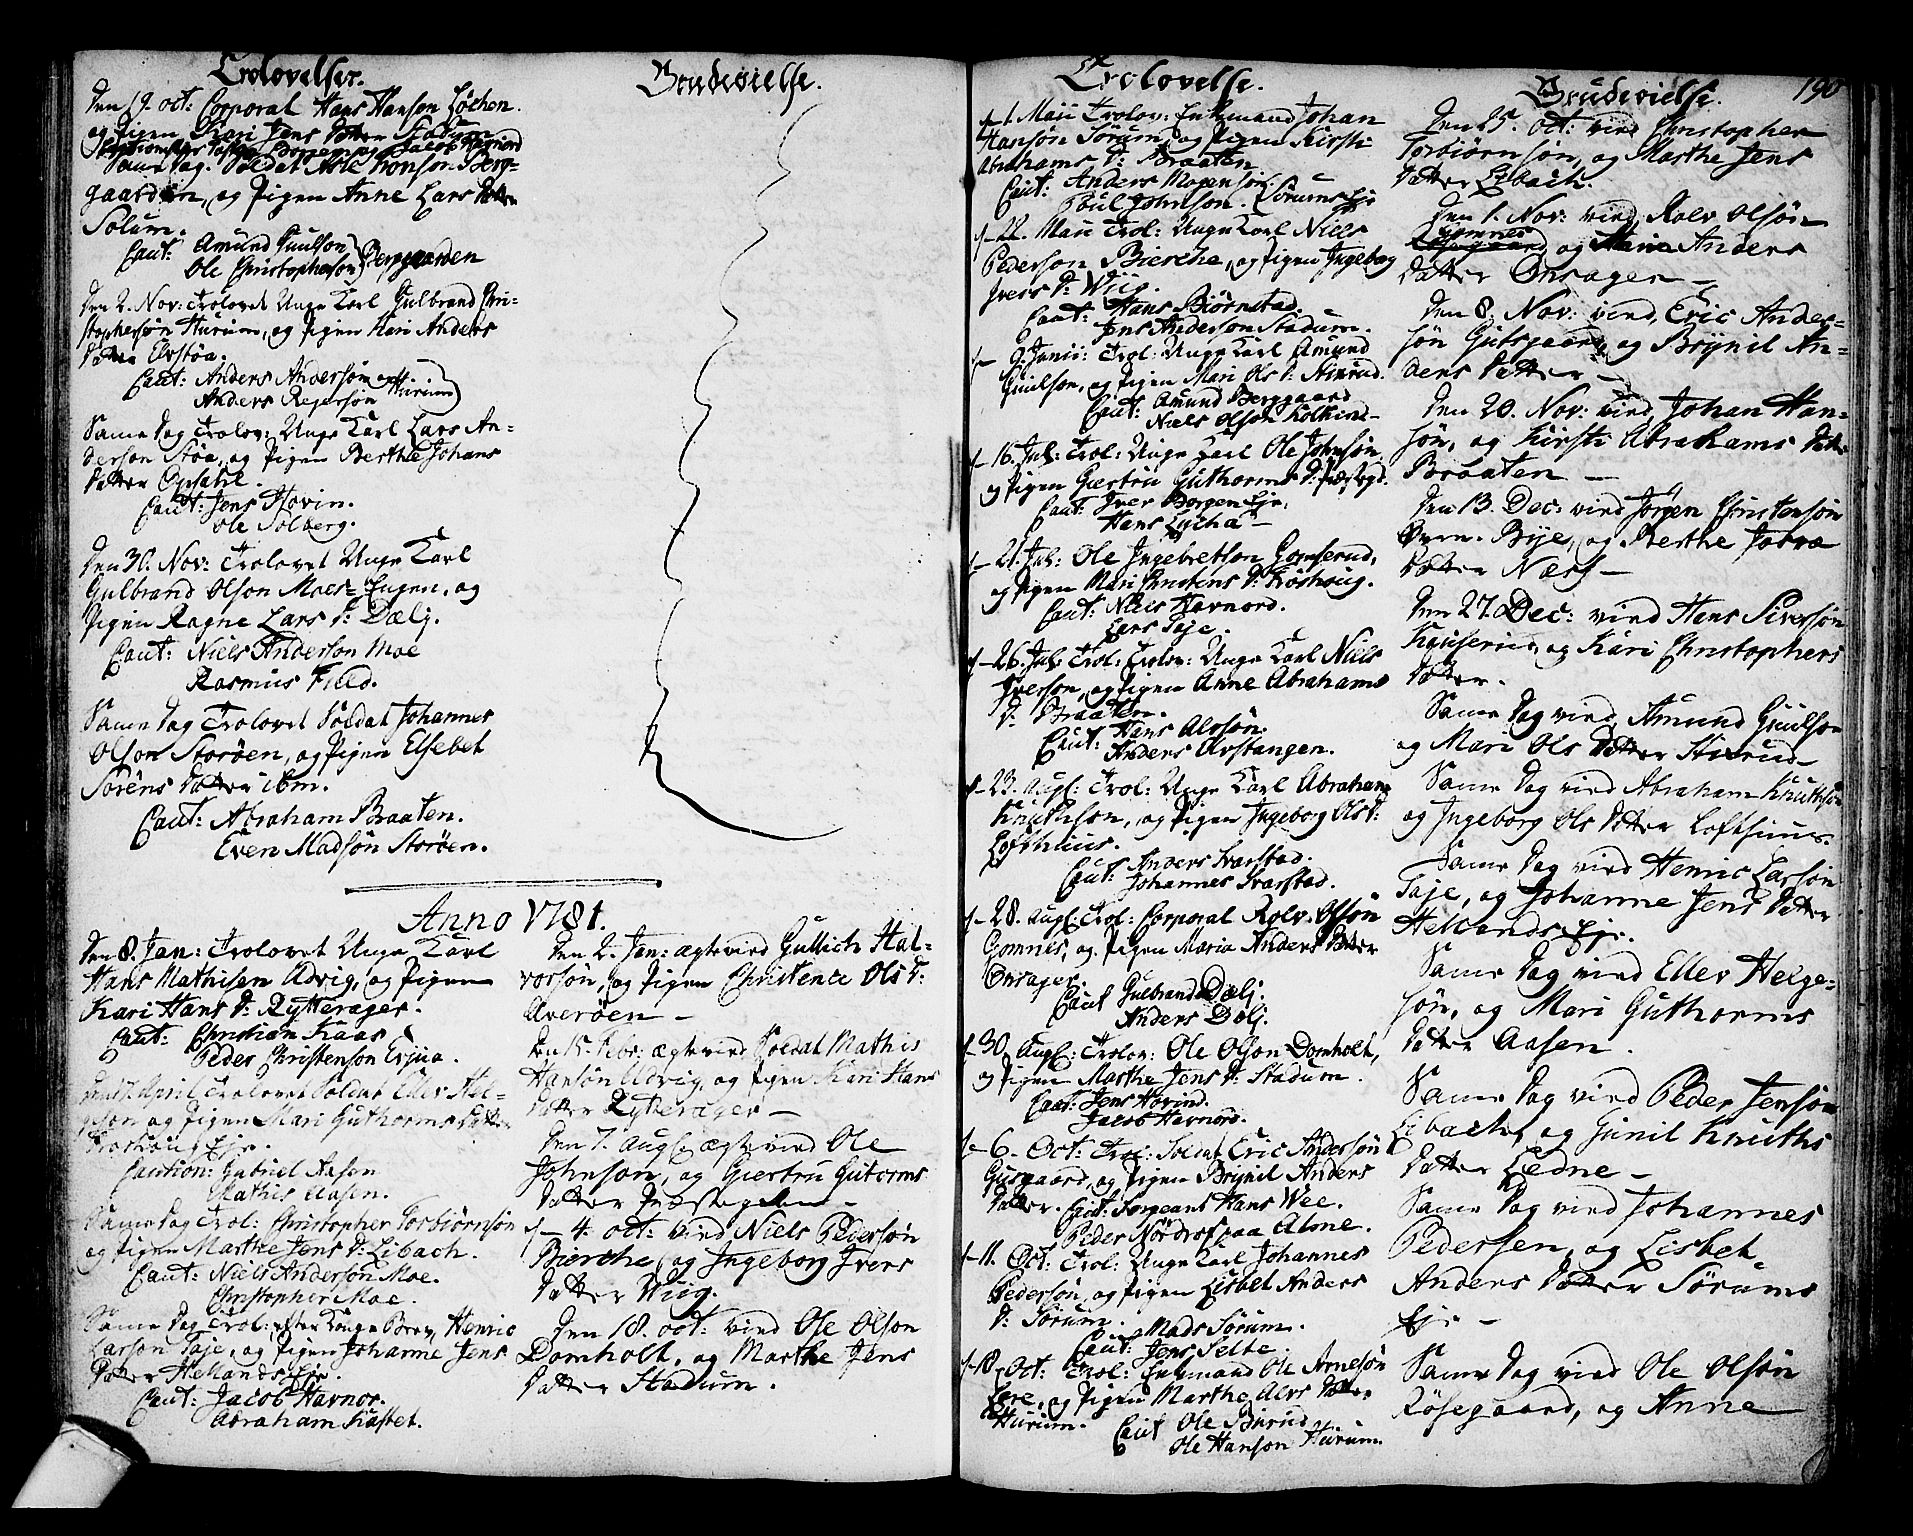 Trolovelser.
Den 19. oct: Corporal Hans Hanson Löchen.
og Pigen Kari Jens Datter Stadum
Borgen og Jacob Havnord
Samme dag. Soldat Asle Berg-
gaarden, og Pigen Anne Lars Datter
Solum.
Caut: Amund Paulson
Ole Christopherson Berggaarden
Den 2. Nov: Trolovet Unge Karl Gulbrand Chri-
stophersøn Hurum, og Pigen Kari Anders
Datter Elvstøa.
Caut: Anders Anderson
Anders Hurum
Samme Dag Trolov: Unge Karl Lars An-
derson Støa, og Pigen Berthe Johans
Datter Opsahl.
Caut: Jens Hovin.
Ole Solberg.
Den 30. Nov: Trolovet Unge Karl
Gulbrand Olson Moes-Eugen, og
Pigen Ragne Lars D: Dælj.
Caut: Niels Anderson Moe
Rasmus Field.
Samme Dag Trolovet Soldat Johannes
Olson Storøen, og Pigen Elsebet
Sørens Datter ibm.
Caut: Abraham Braaten.
Even Madsøn Storøen.
Brudevielse.
Anno 1781.
Den 8. Jan: Trolovet Unge Karl
Hans Mathisen Udvig, og Pigen
Kari Hans D: Rytterager.
Caut: Christian Kaas
Peder Christenson Erjua.
Den 17. April Trolovet Soldat Eller Hel-
geson og Pigen Mari Guthorms Datter
Eje.
Caution: Gabriel Aasen
Mathis Aasen.
Samme dag Trol: Christopher Torbiørnsøn
og Pigen Marthe Jens D: Libach.
Caut: Niels Anderson Moe.
Christopher Moe.
Samme Dag Trol: efter Konge Brev, Henric
Larson Taje, og Pigen Johanne Jens
Datter Hellands Eje.
Caut: Jacob Havnor.
Abraham Kastet.
Den 2. Jan: ægtevied Gullich Hal-
vorsøn, og Pigen Christence Ols D:
Averøen –
Den 15. Febr: ægtevied Soldat Mathis
Hansøn Udvig, og Pigen Kari Hans
Datter Rytterager –
Den 7. Aug: ægtevied Ole
Johnson, og Giertru Gutorms
Datter Præstegden –
d– 4. oct: vied Niels Pedersøn
Bierche, og Ingeborg Ivers
Datter Wiig.
Den 18. oct: vied Ole Olson
Domholt, og Marthe Jens
Datter Stadum.
Trolovelse.
d– 1. Maii Trolov: Enkemand Johan
Hansøn Sørum, og Pigen Kirsti
Abrahams D: Braaten
Caut: Anders Mogensøn.
Poul Johnson. Sørums Eje
d– 22. Maii Trol: Unge Karl Niels
Pederson Bierche, og Pigen Ingeborg
Ivers D: Wiig.
Caut: Hans Biørnstad.
Jens Anderson Stadum.
d– 9. Junii: Trol: Unge Karl Amund
Guulson, og Pigen Mari Ols D: Hiirud.
Caut: Amund Berggaard
Niels Olson
d– 16. Jul: Trol: Unge Karl Ole Johnsøn
og Pigen Giertru Guthorms D: Præstegd.
Caut: Iver Borgen Eje.
Hans Lycha –
d– 21. Jul: Ole Ingebretson Gomserud,
og Pigen Mari Christens D:
Caut: Niels Havnord.
Lars Teje.
d– 26. Jul: Trol: Trolov: Unge Karl Niels
Iverson, og Pigen Anne Abrahams
D: Braaten.
Caut: Hans Alvsøn.
Anders Alvstangen.
d– 23. Aug: Trol: Unge Karl Abraham
Knuthson, og Pigen Ingeborg Ols D:
Lofthuus.
Caut: Anders Svarstad.
Johannes Svarstad.
d– 28. Aug: Trol: Corporal Rolv Olsøn
Gomnes, og Pigen Maria Anders Datter
Onsager.
Caut Gulbrand Dælj.
Anders Dælj.
d– 30. Aug: Trolov: Ole Olson Domholt,
og Pigen Marthe Jens D: Stadum.
Caut: Jens Hovind.
Jacob Havnord.
d– 6. Oct: Trol: Soldat Eric Andersøn
Gusgaard, og Pigen Brynil Anders
Datter. Caut: Sergeant Hans Wee.
Peder Nordrof paa Alme.
d– 11. Oct: Trol: Unge Karl Johannes
Pedersøn, og Pigen Lisbet Anders
D: Sørum.
Caut: Mads Sørum.
Jens Selte.
d– 18. Oct: Trol: Enkemand Ole Arnesøn
og Pigen Marthe Alvs Datter
Hurum.
Caut Ole
Ole Hanson Hurum.
190
Brudevielse.
Den 25. oct: vied Christopher
Torbiørnsøn, og Marthe Jens
Datter Libach.
Den 1. Nov: vied Rolv Olsøn
Gomnes og Maria Anders
Datter Onsager –
Den 8. Nov: vied, Eric Ander-
søn Gutsgaard, og Brynil An-
ders Datter –
Den 20. Nov: vied, Johan Han-
søn, og Kirsti Abrahams Datter
Braaten –
Den 13. Dec: vied Jørgen Christensøn
Bye, og Berthe
Datter Næss –
Den 27. Dec: vied Hans Siversøn
og Kari Christophers
Datter.
Samme Dag vied Amund Guulson
og Mari Ols Datter Hiirud
Samme Dag vied Abraham Knuthson
og Ingeborg Ols Datter Lofthuus.
Samme Dag vied Henric Larson
Taje, og Johanne Jens Datter
Hellands Eje.
Samme Dag vied Eller Helge-
søn, og Mari Guthorms
Datter Aasen.
Samme Dag vied Peder Jensøn
Libach, og Gunil Knuths
Datter Ledne –
Samme Dag vied Johannes
Pedersen, og Lisbet
Anders Datter Sørums
Eje –
Samme Dag vied Ole Olsøn
Røsegaard, og Anne